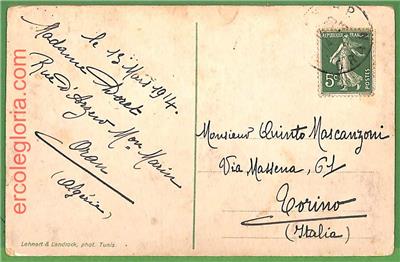 le 13 Mars 1914.
Madame Doret
Rue d'Arzew Mon Marin
Oran
(Algérie)
Monsieur Quinto Mascanzoni
Via Massena, 67
Torino
(Italia)
REPUBLIQUE FRANÇAISE
5c
POSTES
Lehnert & Landrock, phot. Tunis.
ercolegloria.com